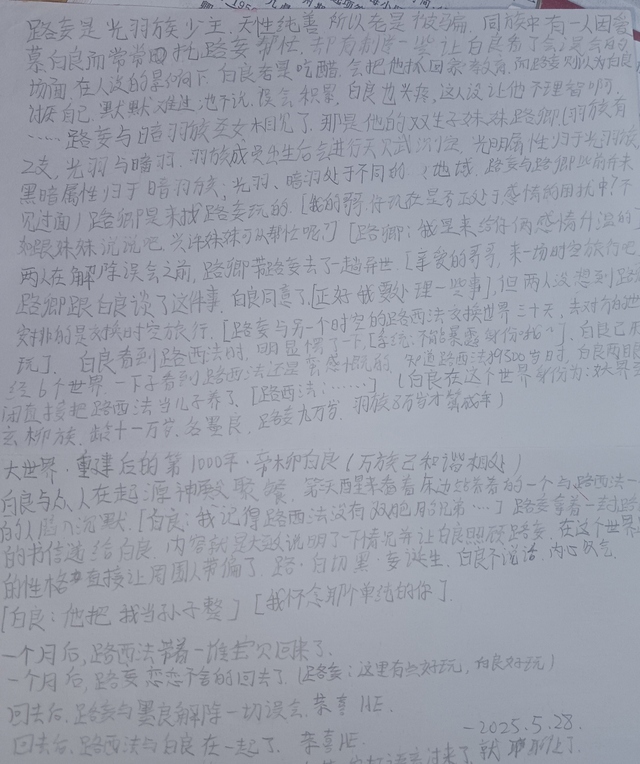 路委是光羽族少主.天性纯善所以老是被骗.同族中有一人因爱
慕白良而常常找路委帮忙 却制造一些让白良看了会误会的
场面.在人设的影响下.白良老是吃醋.会把他抓回家教育.而路委则认为白良
讨厌自己.默默难过.也不说.误会积累.白良也头疼,这人设让他不理智啊.
……路委与暗羽族圣女相见了.那是他的双生子妹妹路卿.[羽族有
2支,光羽与暗羽.羽族成员出生后会进行.光明属性归于光羽族
黑暗属性归于暗羽族.光羽、暗羽处于不同的地域.路委与路卿
见过面)路卿是来找路委玩的.[我的哥.你现在是否正处于感情的困扰中?不
如跟妹妹说说吧.兴许妹妹可以帮忙呢?][路卿:我是来给你俩感情升温的]
两人在解除误会之前,路卿带路委去了一趟异世.[亲爱的哥哥,来一场时空旅行吧]
路卿跟白良谈了这件事.白良同意了.[正好我要处理一些事]但两人没想到路
安排的是交换时空旅行.[路委与另一个时空的路西法交换世界三十天,去对方的地
玩了.白良看到路西法时,明显愣了一下.[系统:不能暴露身份哦~].白良已
经6个世界.一下子看到路西法还是蛮感慨的.知道路西法约500岁时.白良两眼
闭直接把路西法当儿子养了.[路西法:……](白良在这个世界身份为:妖界
玄柳族.龄十一万岁.名墨良.路委九万岁.羽族8万岁才算成年)
大世界·重建后的第1000年·帝柳白良(万族已和谐相处)
白良与众人在起源神殿聚餐.第二天醒来看着床边坐着的一个与路西法一
的人陷入沉默.[白良:我记得路西法没有双胞胎兄弟…]路委拿着一封路
的书信递给白良.内容就是大致说明了一下情况并让白良照顾路委.在这个世界
的性格直接让周围人带偏了.路·白切黑·委诞生.白良不说话.内心叹气.
[白良:他把我当孙子整][我怀念那个单纯的你].
一个月后,路西法带着一堆宝贝回来了.
一个月后,路委恋恋不舍的回去了.(路委:这里有些好玩,白良好玩)
回去后.路委与墨良解除一切误会.恭喜HE.
回去后.路西法与白良在一起了.恭喜HE.
-2025.5.28.